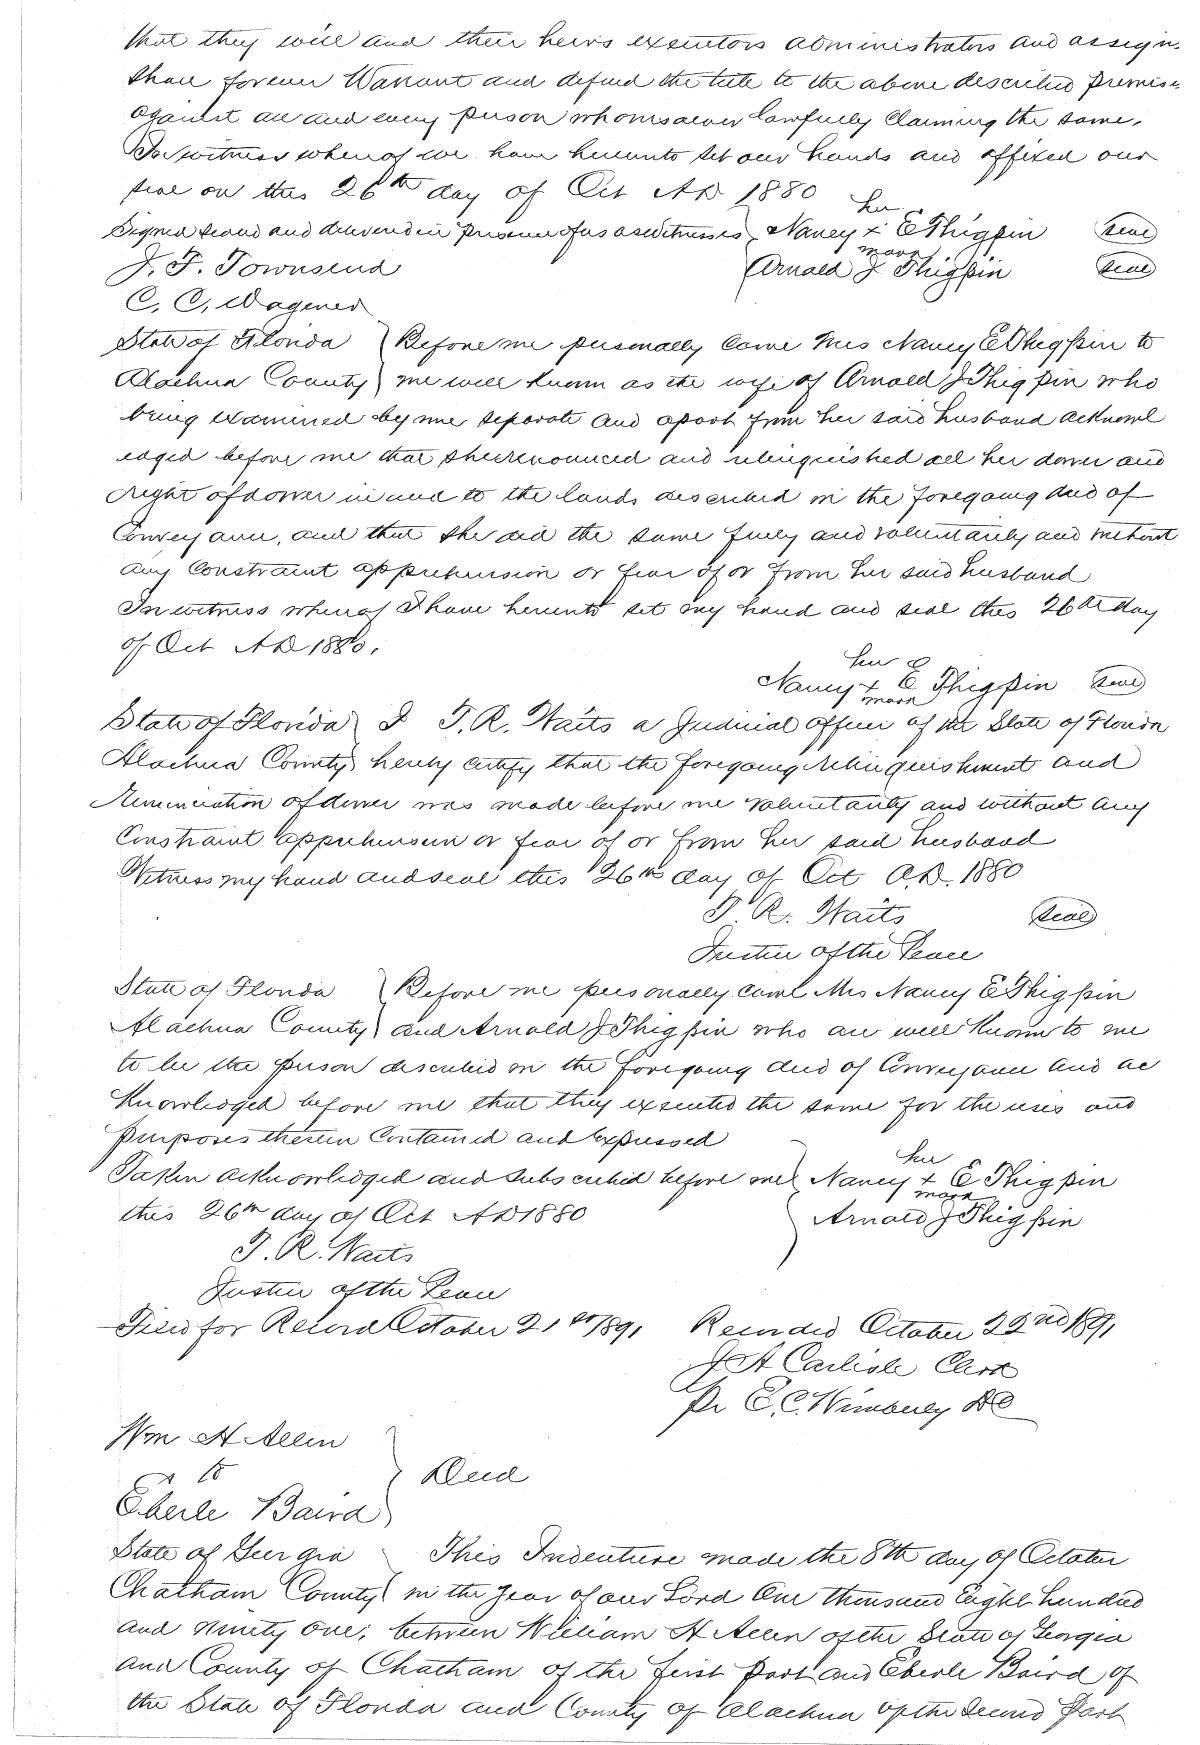 that they will and their heirs executors administrators and assigns
shall forever Warrant and defend the title to the above described premises
against all and every person whomsoever lawfully claiming the same.
In witness whereof we have hereunto set our hands and affixed our
seal on this 26th day of Oct AD 1880
her
Signed sealed and delivered in presence of us as witnesses Nancy x E Thigpin seal
mark
J. F. Townsend Arnold J Thigpin seal
C. C. Wagener
State of Florida Before me personally came Mrs Nancy E Thigpin to
Alachua County me well known as the wife of Arnold J Thigpin who
being examined by me separate and apart from her said husband acknowl
edged before me that she renounced and relinquished all her dower and
right of dower in and to the lands described in the foregoing deed of
Conveyance, and that she did the same freely and voluntarily and without
any constraint apprehension or fear of or from her said husband
In witness whereof I have hereunto set my hand and seal this 26th day
of Oct AD 1880.
her
Nancy x E Thigpin seal
mark
State of Florida I T. R. Waits a Judicial officer of the State of Florida
Alachua County hereby certify that the foregoing relinquishment and
Renunciation of dower was made before me voluntarily and without any
Constraint apprehension or fear of or from her said husband
Witness my hand and seal this 26th day of Oct A.D. 1880
T. R. Waits seal
Justice of the Peace
State of Florida Before me personally came Mrs Nancy E Thigpin
Alachua County and Arnold J Thigpin who are well Known to me
to be the person described in the foregoing deed of Conveyance and ac
Knowledged before me that they executed the same for the uses and
purposes therein Contained and expressed
her
Taken acknowledged and subscribed before me Nancy x E Thigpin
mark
this 26th day of Oct AD 1880 Arnold J Thigpin
T. R. Waits
Justice of the Peace
Filed for Record October 21st 1891 Recorded October 22nd 1891
J A Carlisle Clerk
Pr E. C. Wimberley DC
Wm H Allen
to Deed
Eberle Baird
State of Georgia This Indenture made the 8th day of October
Chatham County in the year of our Lord One thousand Eight hundred
and ninety one, between William H Allen of the State of Georgia
and County of Chatham of the first part and Eberle Baird of
the State of Florida and County of Alachua of the second part